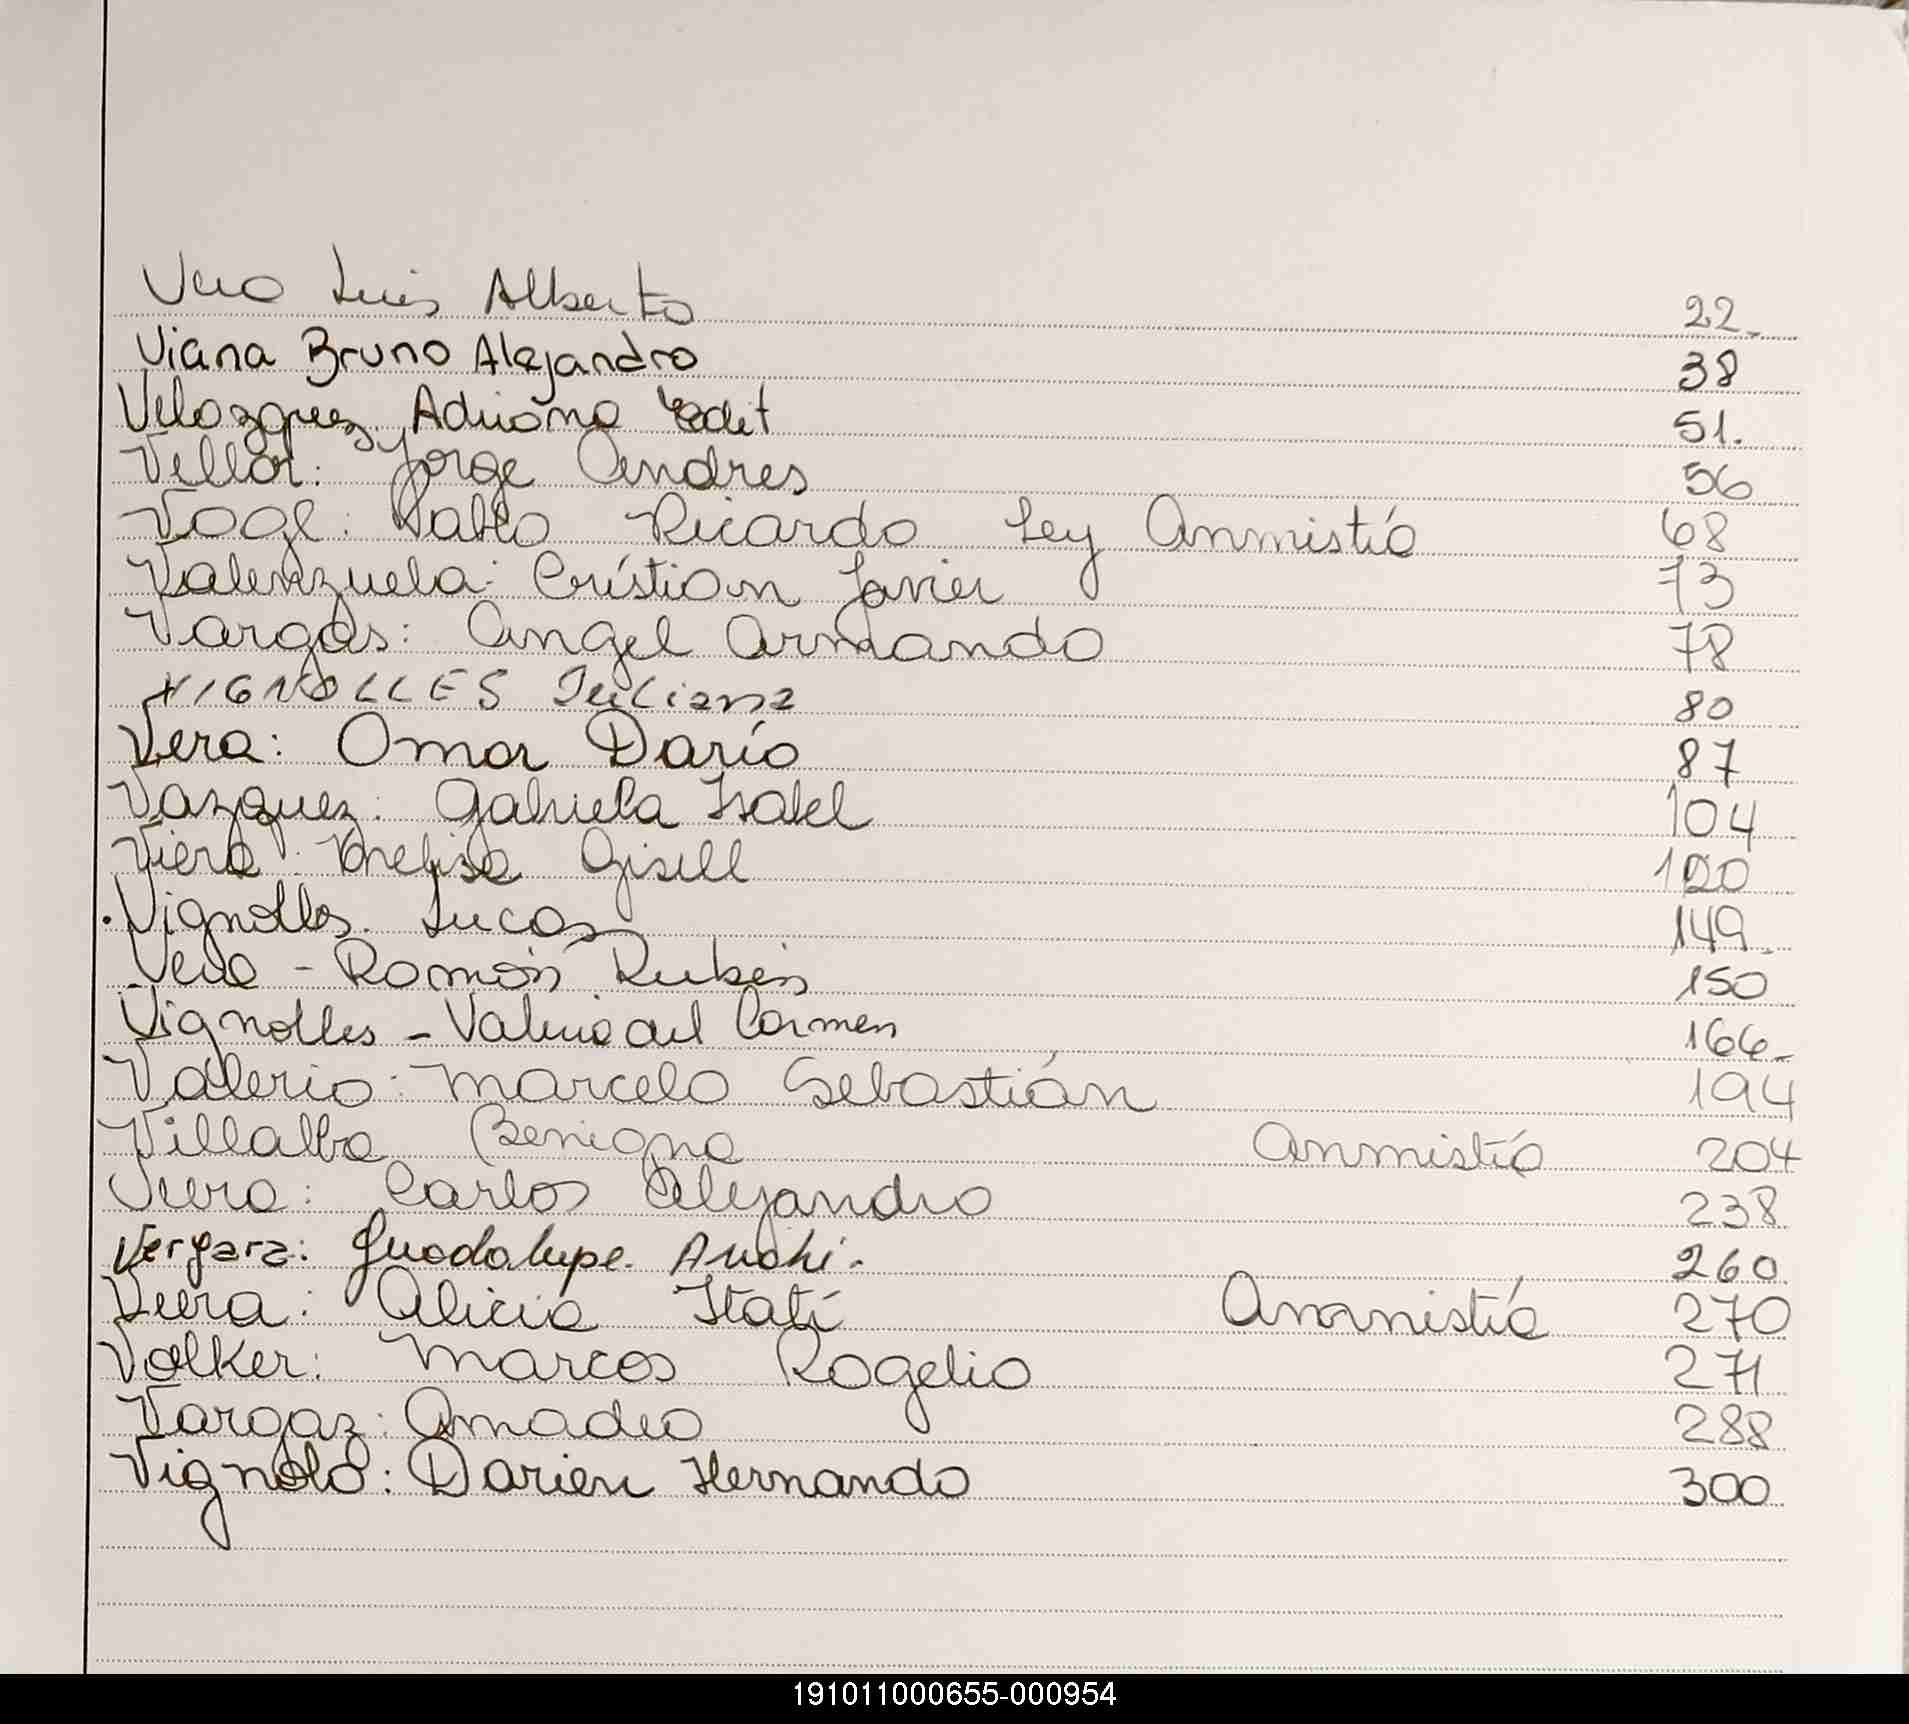 Vera Luis Alberto 22.
Viana Bruno Alejandro 38
Velazquez Adriana Yedit 51.
Vellor: Jorge Andres 56
Vogl: Pablo Ricardo Ley Anmistía 68
Valenzuela: Cristian Javier 73
Vargas: Angel Armando 78
VIGNOLLES Juliana 80
Vera: Omar Darío 87
Vazquez: Gabriela Isabel 104
Viera: Gisell 120
Vignolles Lucas 149.
Vera - Ramón Rubén 150
Vignolles - Valeria del Carmen 166.
Valerio: Marcelo Sebastián 194
Villalba Benigna Anmistía 204
Viera: Carlos Alejandro 238
Vergara: Guadalupe. Anahi. 260
Viera: Alicia Itatí Anmistía 270
Volker: Marcos Rogelio 271
Vargaz: Amadeo 288
Vignolo: Darien Hernando 300
191011000655-000954